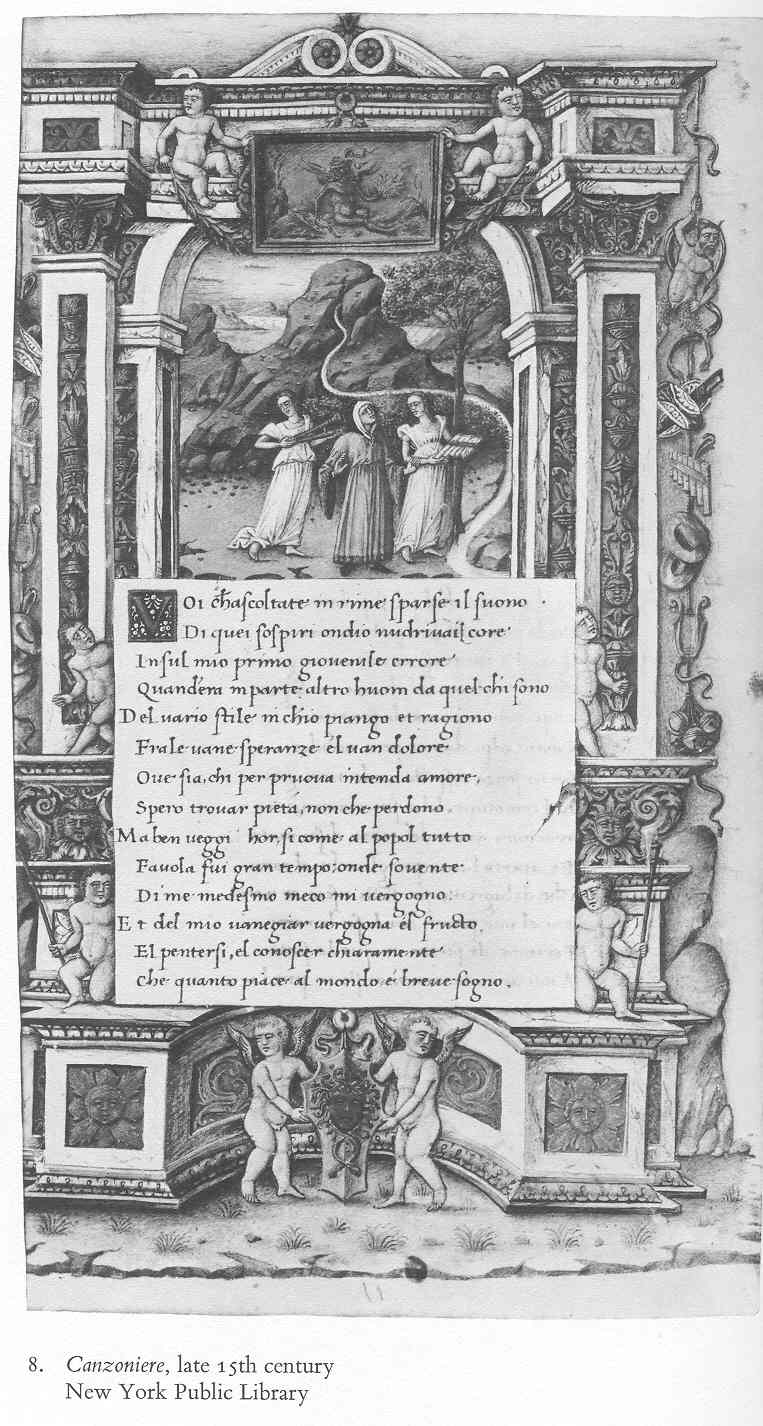 VOI ch̄ascoltate in rime sparse il suono
Di quei sospiri ondio nudrivail core
In sul mio primo giovenile errore
Quand'era in parte altro huom da quel chi sono
Del vario stile in chio piango et ragiono
Fra le vane speranze e'l van dolore
Ove sia, chi per pruova intenda amore,
Spero trovar pietà, non che perdono.
Ma ben veggi hor, si come al popol tutto
Favola fui gran tempo: onde sovente
Di me medesmo meco mi vergogno:
Et del mio vanegiar vergogna e'l fructo,
El pentersi, el conoscer chiaramente
Che quanto piace al mondo é breve sogno.
8. Canzoniere, late 15th century
New York Public Library